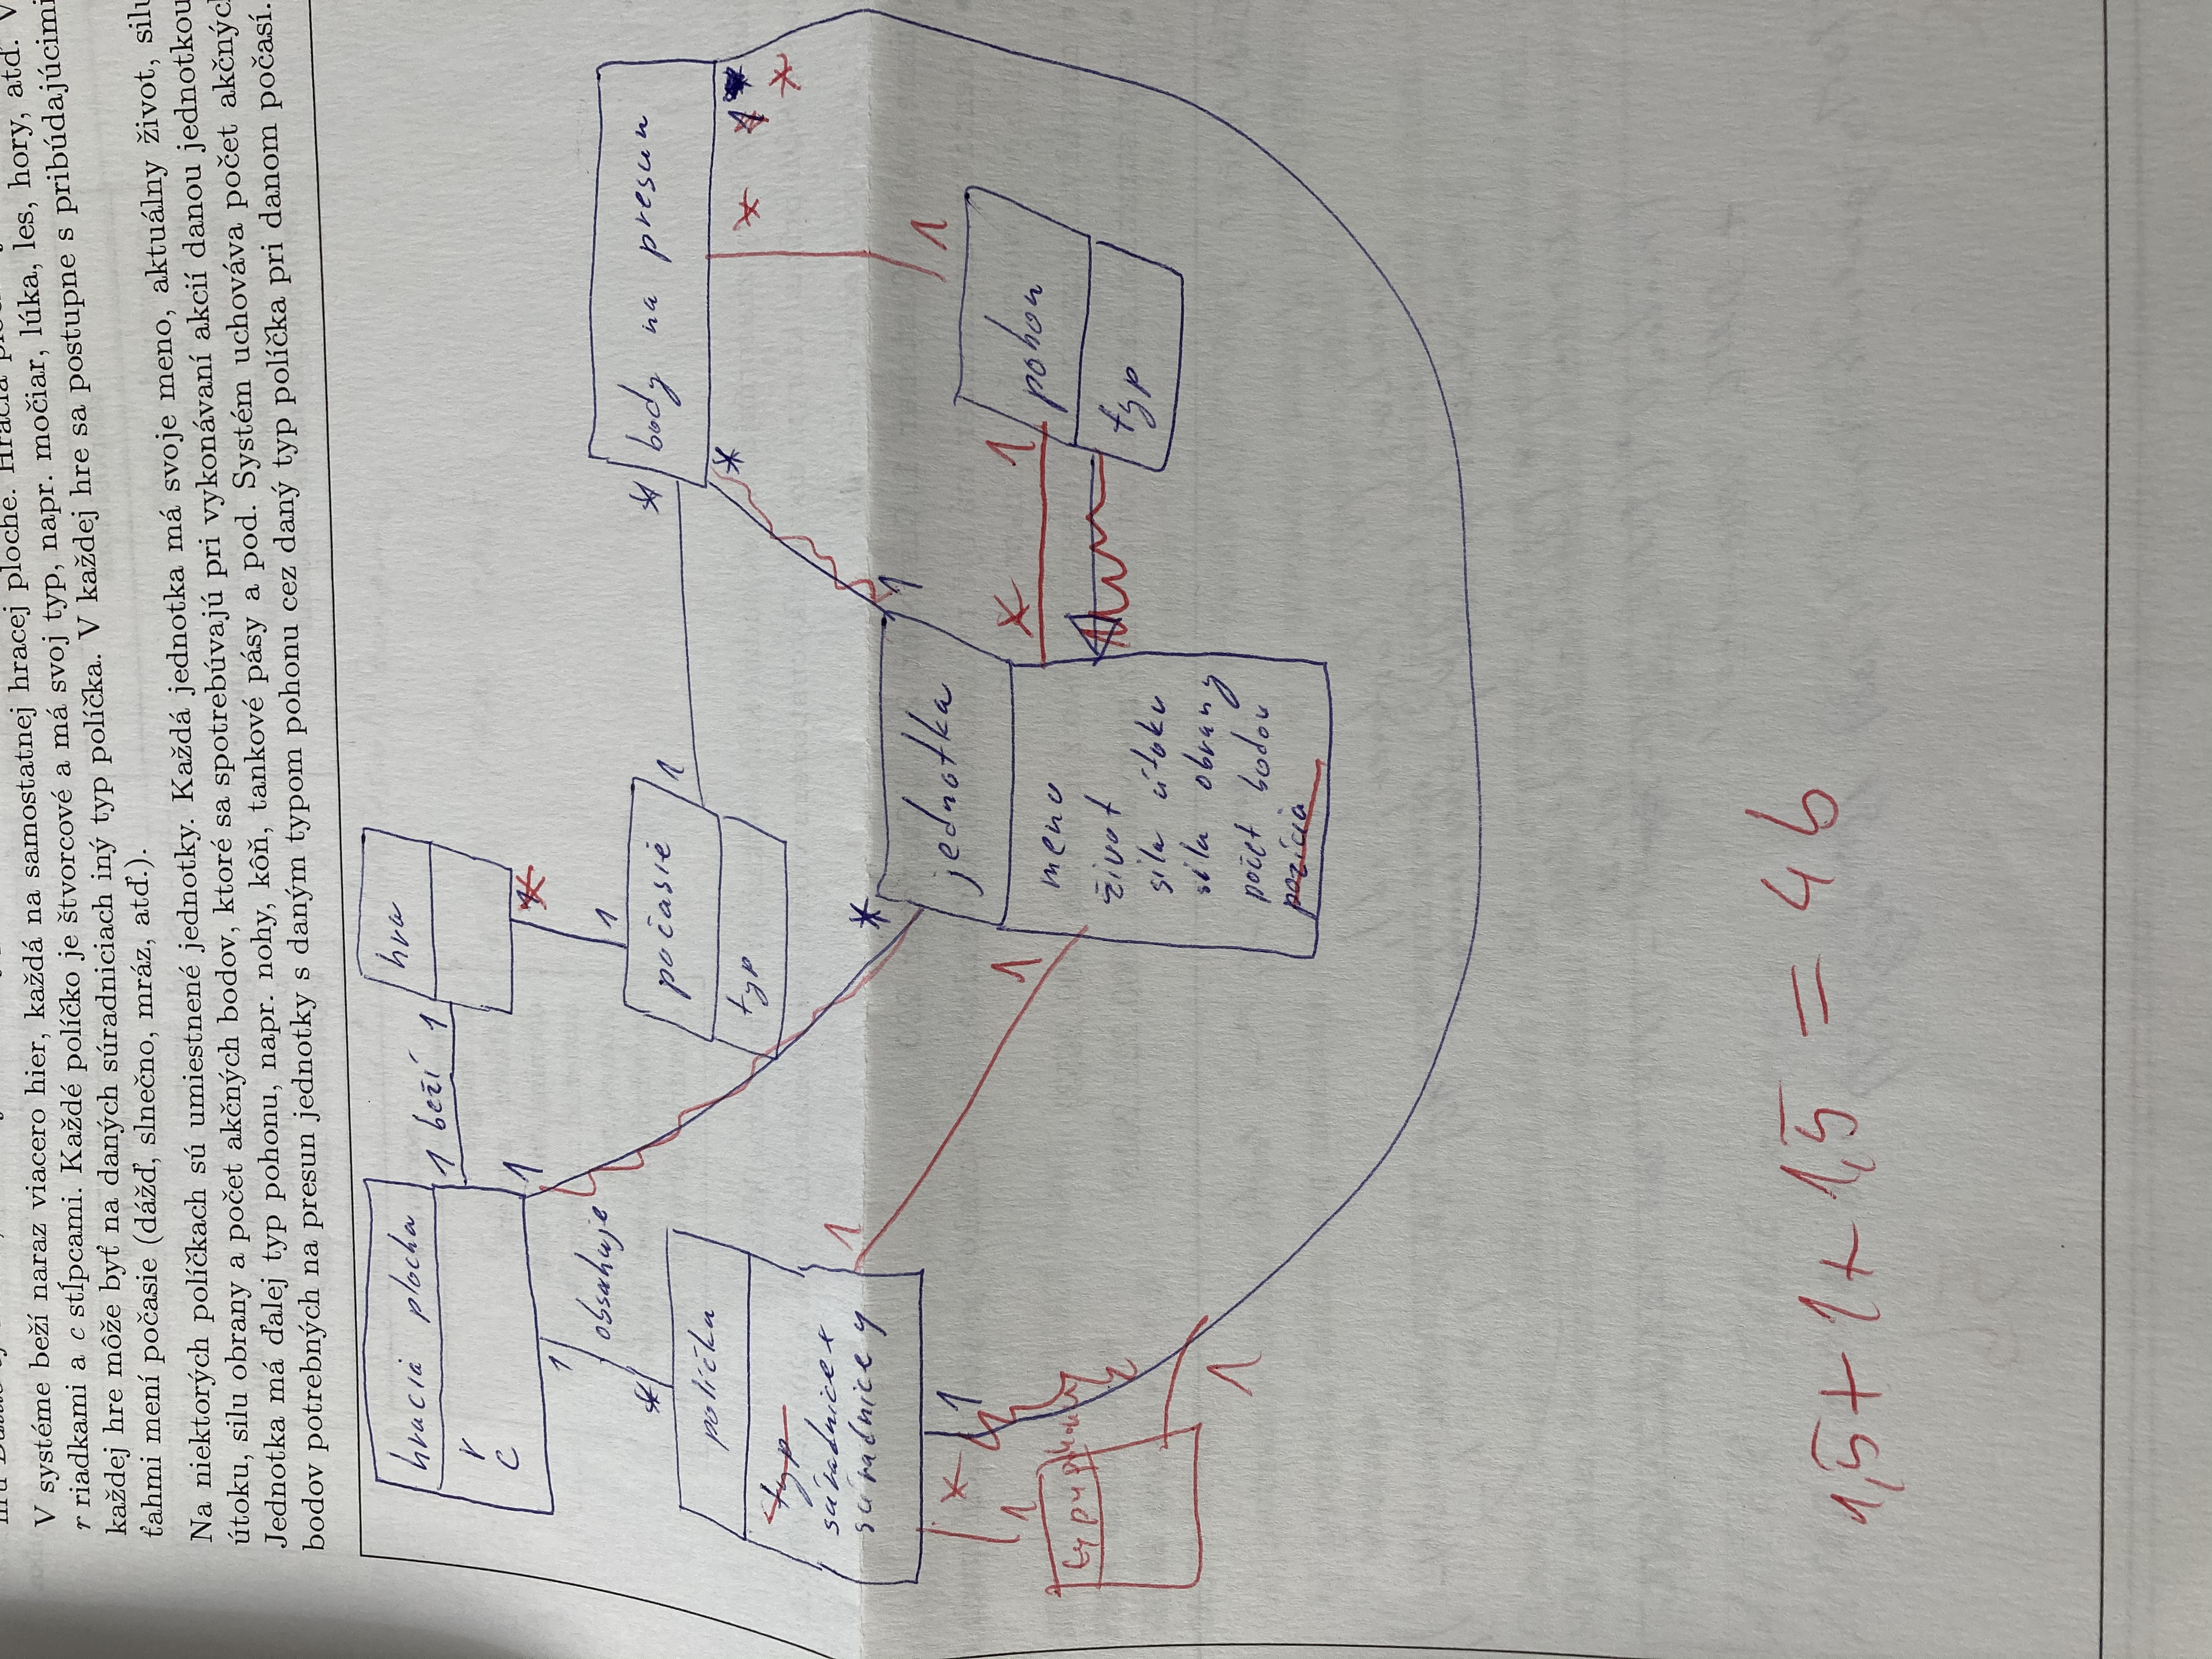 V systéme beží naraz viacero hier, každá na samostatnej hracej ploche. Hracia
r riadkami a c stĺpcami. Každé políčko je štvorcové a má svoj typ, napr. močiar, lúka, les, hory, atď. V
každej hre môže byť na daných súradniciach iný typ políčka. V každej hre sa postupne s pribúdajúcimi
ťahmi mení počasie (dážď, slnečno, mráz, atď.).
Na niektorých políčkach sú umiestnené jednotky. Každá jednotka má svoje meno, aktuálny život, silu
útoku, silu obrany a počet akčných bodov, ktoré sa spotrebúvajú pri vykonávaní akcií danou jednotkou
Jednotka má ďalej typ pohonu, napr. nohy, kôň, tankové pásy a pod. Systém uchováva počet akčných
bodov potrebných na presun jednotky s daným typom pohonu cez daný typ políčka pri danom počasí.
hracia plocha
r
c
1 beží 1
hra
1
1
1
obsahuje
*
1
počasie
typ
1
*
body na presun
*
*
políčku
typ
súradnice x
súradnice y
1
*
1
1
*
1
*
1
jednotka
meno
život
sila útoku
sila obrany
počet bodov
pozícia
1
* 1
pohon
typ
1
1
1,5 + 1 + 1,5 = 4b